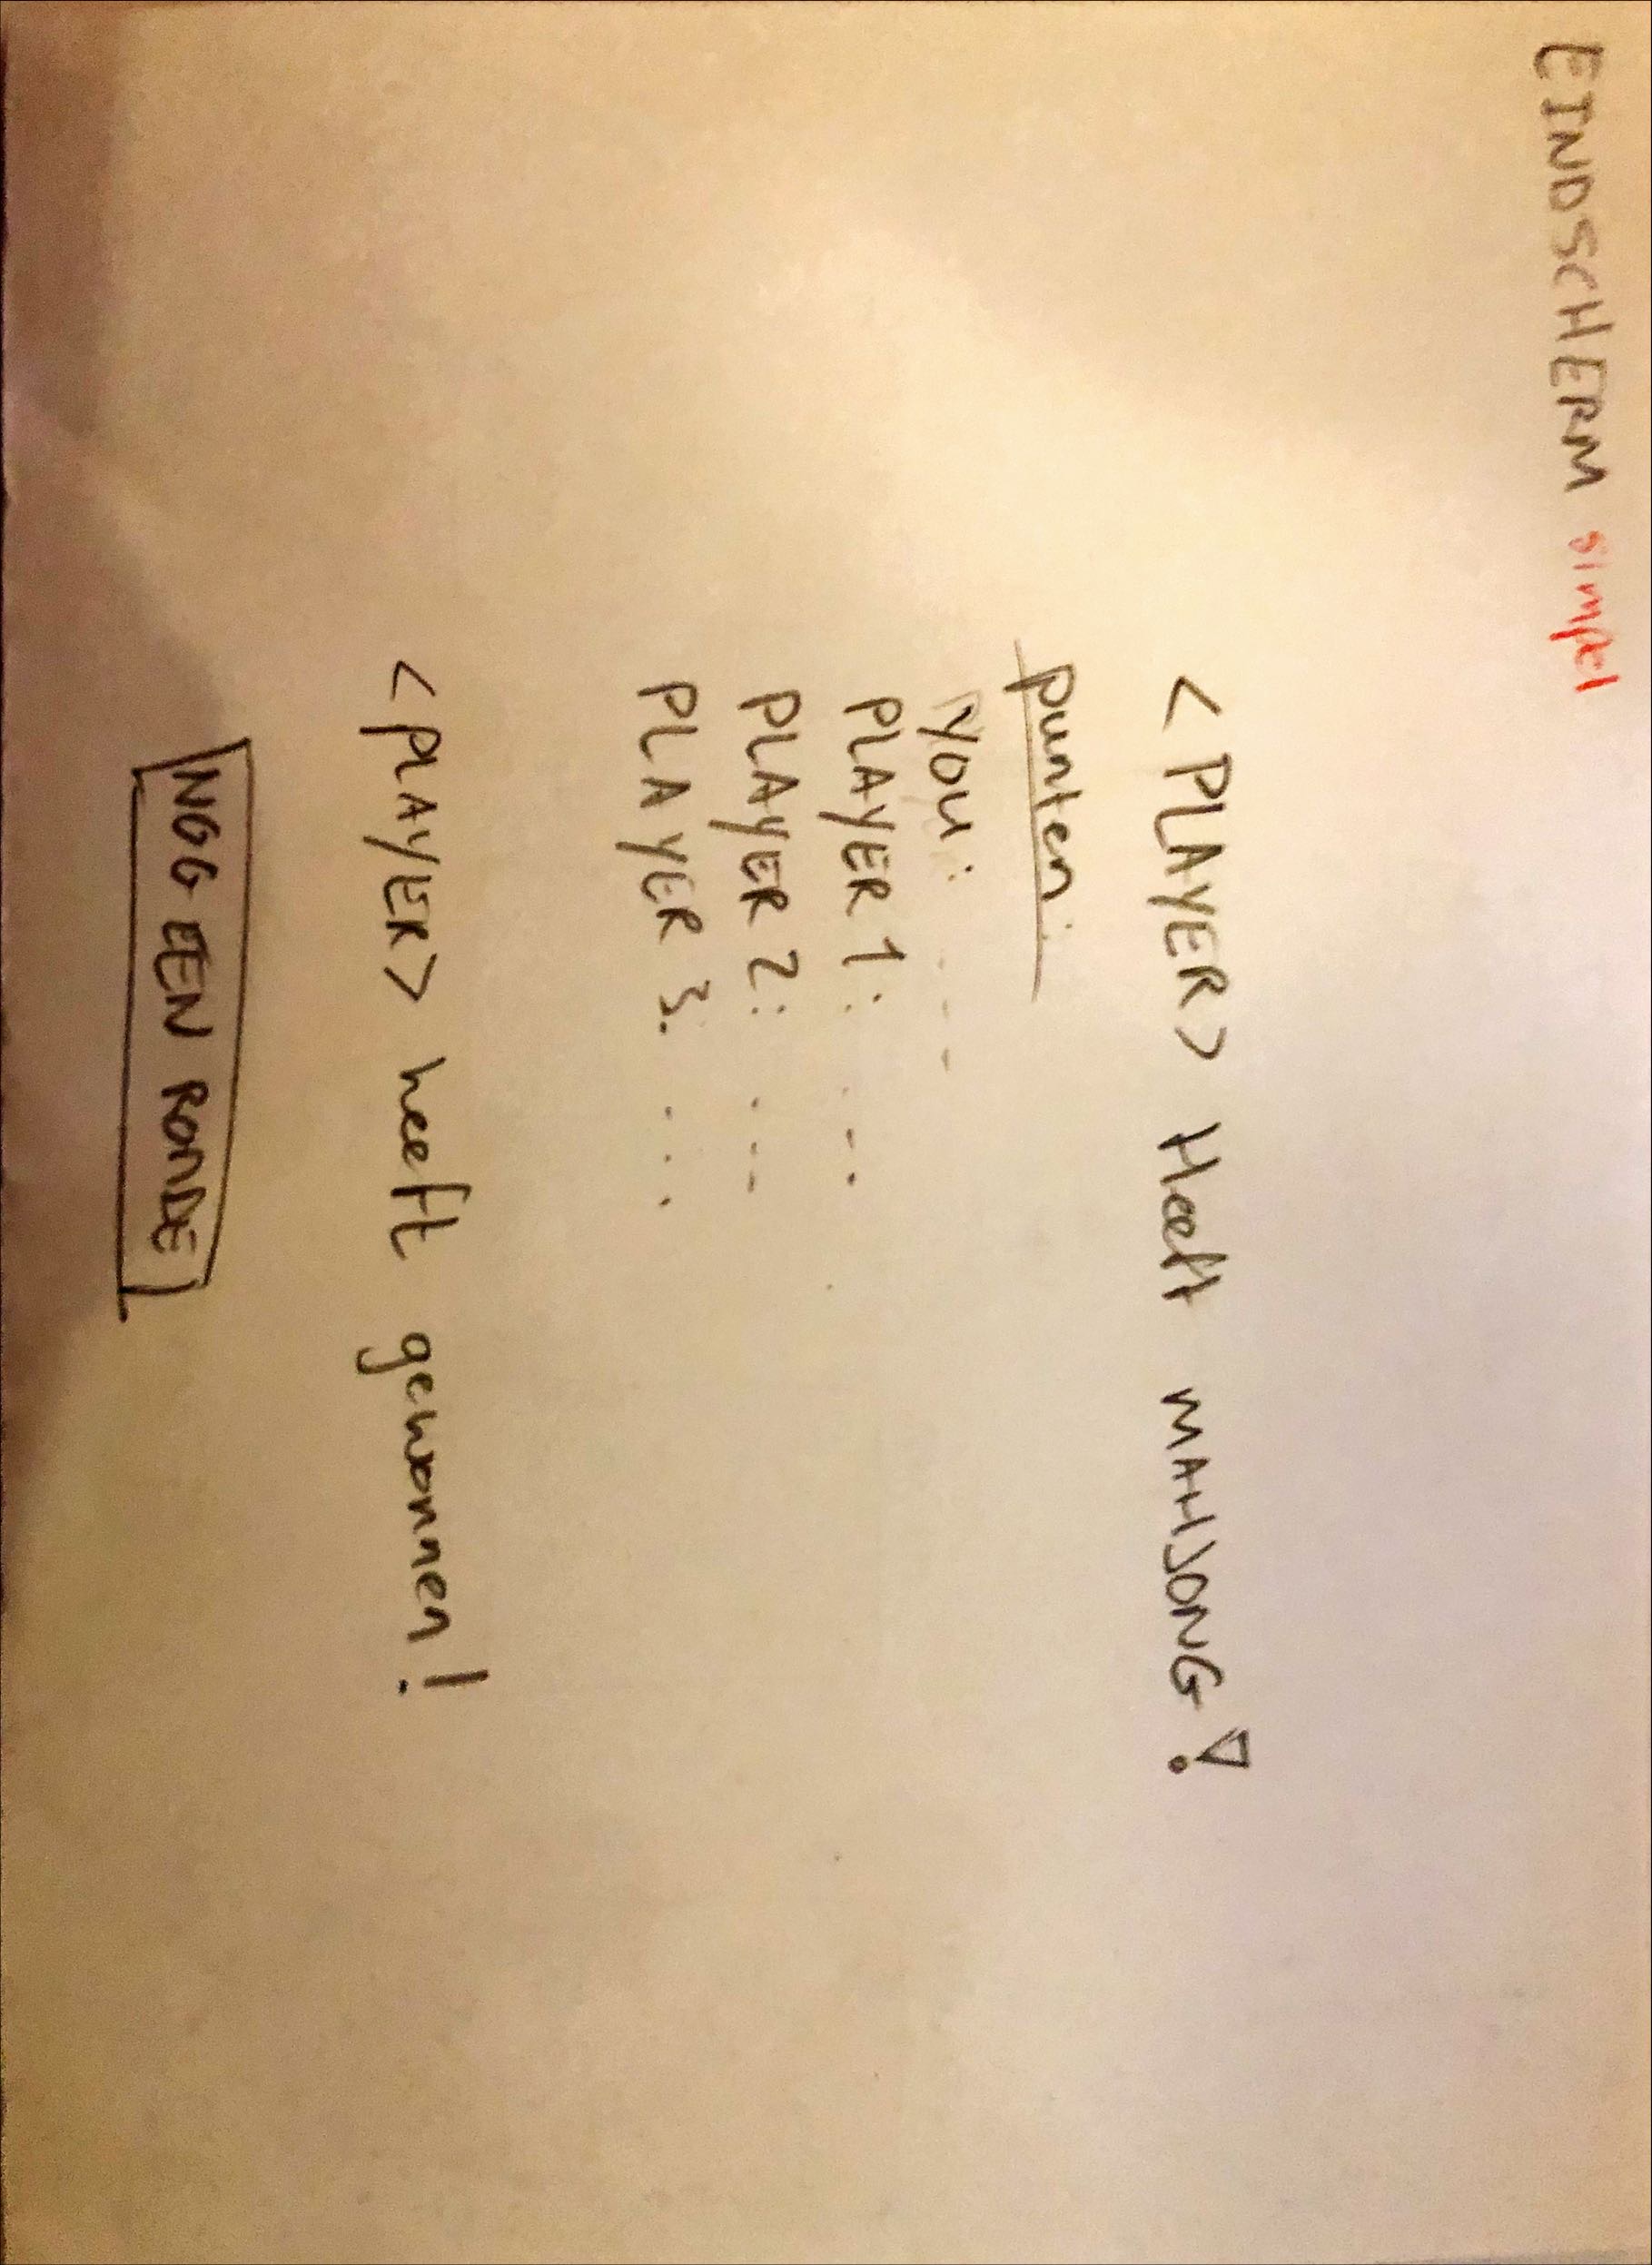 EINDSCHERM simpel
<PLAYER> Heeft MAHJONG!
punten:
YOU: ---
PLAYER 1: ---
PLAYER 2: ---
PLAYER 3. ...
<PLAYER> heeft gewonnen!
NOG EEN RONDE